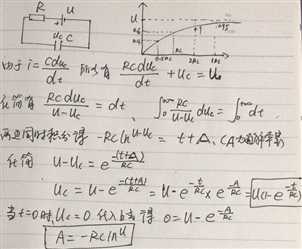 R U
U
uc C
0.5RC RC 2RC 3RC
由于 i = Cduc/dt 所以有 RCduc/dt + Uc = U
化简有 RCduc/U-Uc = dt, ∫RC/U-Uc duc = ∫dt
两边同时积分得 -RC ln U-Uc = t+A, (A为
化简 U-Uc = e^-(t+A)/RC
Uc = U-e^-(t+A)/RC = U-e^-t/RC × e^-A/RC = U(1-e^-t/RC)
当t=0时,Uc=0 代入 得 0=U-e^-A/RC
A=-RC ln U